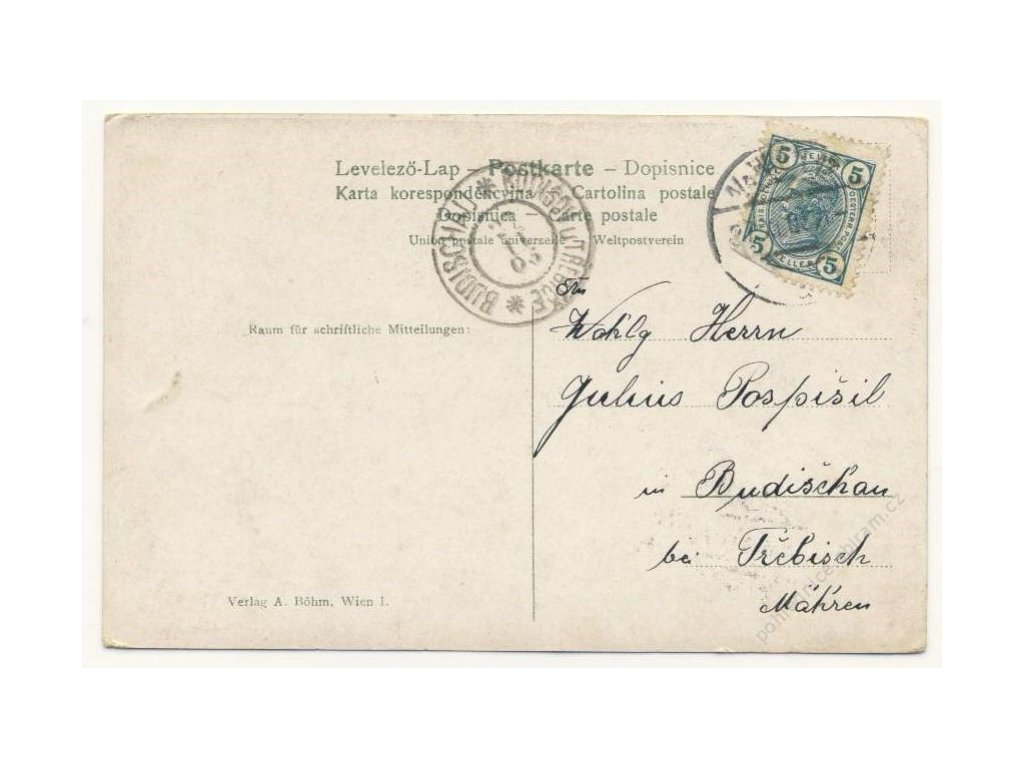 Levelező-Lap – Postkarte – Dopisnice
Karta korespondencyjna – Cartolina postale
Dopisnica – Carte postale
Union postale universelle – Weltpostverein
BUDISCHAU * BUDIŠOV u TŘEBÍČE *
5 5 5 5
HELLER
Raum für schriftliche Mitteilungen:
Wohlg Herrn
Julius Pospišil
in Budišchau
bei Třebisch
Mähren
Verlag A. Böhm, Wien I.